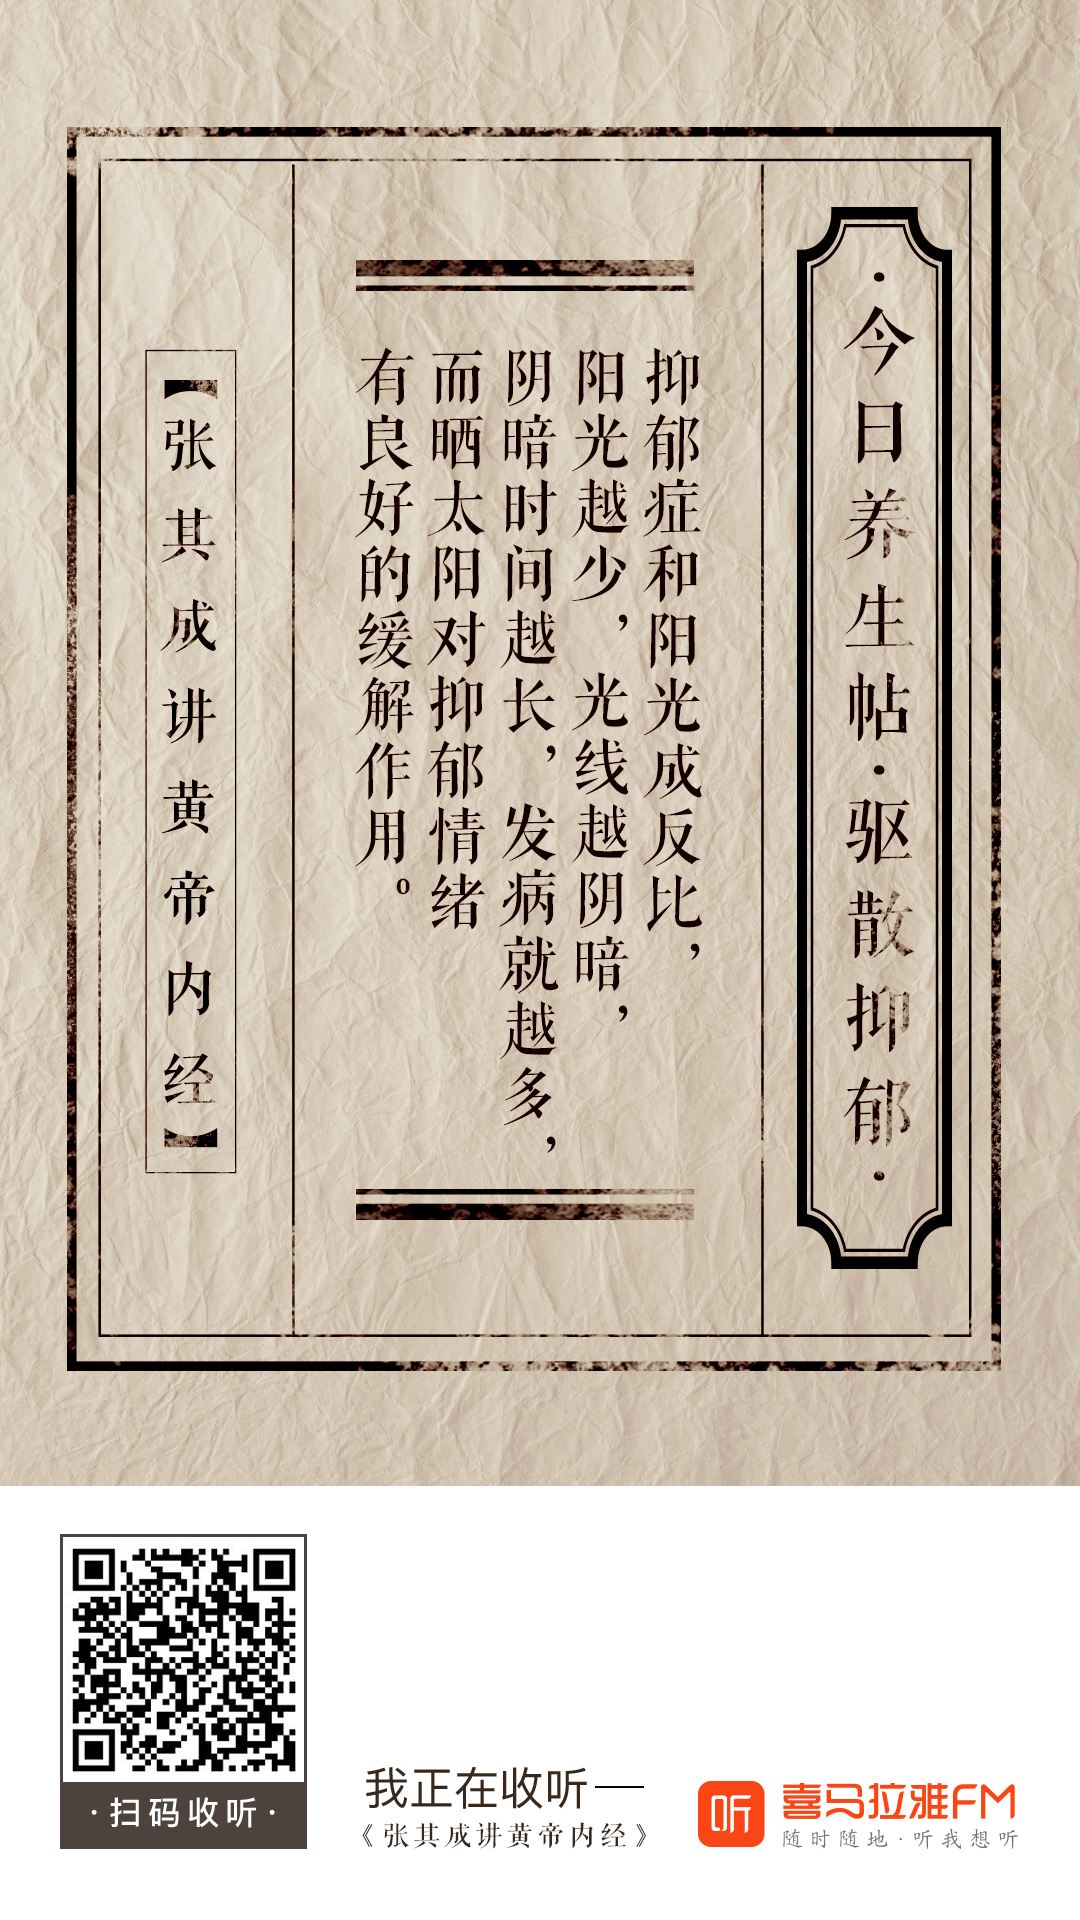 ·今日养生帖·驱散抑郁·
抑郁症和阳光成反比，
阳光越少，光线越阴暗，
阴暗时间越长，发病就越多，
而晒太阳对抑郁情绪
有良好的缓解作用。
【张其成讲黄帝内经】
·扫码收听·
我正在收听——
《张其成讲黄帝内经》
听
喜马拉雅FM
随时随地·听我想听